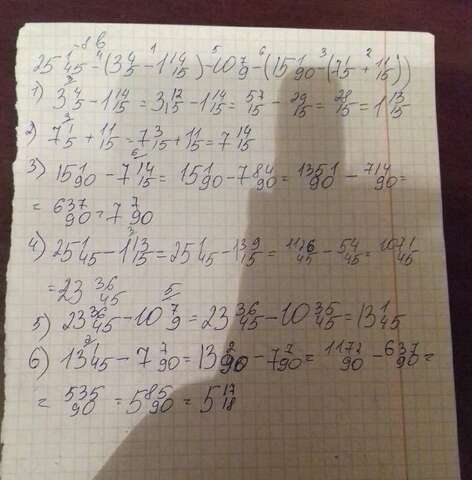 -8 в
25 1/45 - (3 4/5 - 1 14/15) - 10 7/9 - (15 1/90 - (7 1/5 + 11/15))
1) 3 4/5 - 1 14/15 = 3 12/15 - 1 14/15 = 57/15 - 29/15 = 28/15 = 1 13/15
2) 7 1/5 + 11/15 = 7 3/15 + 11/15 = 7 14/15
3) 15 1/90 - 7 14/15 = 15 1/90 - 7 84/90 = 1351/90 - 714/90 =
= 637/90 = 7 7/90
4) 25 1/45 - 1 13/15 = 25 1/45 - 1 39/45 = 1126/45 - 54/45 = 1071/45
= 23 36/45
5) 23 36/45 - 10 7/9 = 23 36/45 - 10 35/45 = 13 1/45
6) 13 1/45 - 7 7/90 = 13 2/90 - 7 7/90 = 1172/90 - 637/90 =
= 535/90 = 5 85/90 = 5 17/18